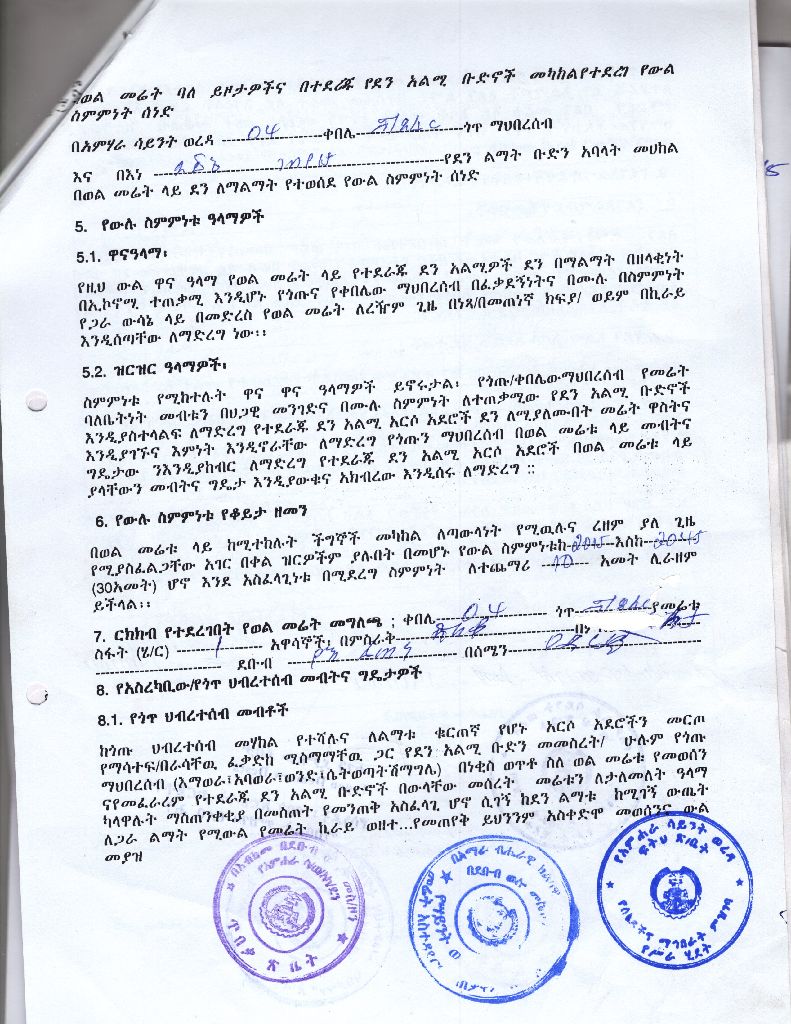 የወል መሬት ባለ ይዞታዎችና በተደራጁ የደን አልሚ ቡድኖች መካከልየተደረገ የውል
ስምምነት ሰነድ
በአምሃራ ሳይንት ወረዳ ---------- 04 ----------ቀበሌ----------ጎጥ ማህበረሰብ
እና በእነ --------------------የደን ልማት ቡድን አባላት መሀከል
በወል መሬት ላይ ደን ለማልማት የተወሰደ የውል ስምምነት ሰነድ
5. የውሉ ስምምነቱ ዓላማዎች
5.1. ዋናዓላማ፡
የዚህ ውል ዋና ዓላማ የወል መሬት ላይ የተደራጁ ደን አልሚዎች ደን በማልማት በዘላቂነት
በኢኮኖሚ ተጠቃሚ እንዲሆኑ የጎጡና የቀበሌው ማህበረሰብ በፈቃደኝነትና በሙሉ በስምምነት
የጋራ ውሳኔ ላይ በመድረስ የወል መሬት ለረዥም ጊዜ በነጻ/በመጠነኛ ክፍያ/ ወይም በኪራይ
እንዲሰጣቸው ለማድረግ ነው፡፡
5.2. ዝርዝር ዓላማዎች፡
ስምምነቱ የሚከተሉት ዋና ዋና ዓላማዎች ይኖሩታል፡ የጎጡ/ቀበሌውማህበረሰብ የመሬት
ባለቤትነት መብቱን በህጋዊ መንገድና በሙሉ ስምምነት ለተጠቃሚው የደን አልሚ ቡድኖች
እንዲያስተላልፍ ለማድረግ የተደራጁ ደን አልሚ አርሶ አደሮች ደን ለሚያለሙበት መሬት ዋስትና
እንዲያገኙና እምነት እንዲኖራቸው ለማድረግ የጎጡን ማህበረሰብ በወል መሬቱ ላይ መብትና
ግዴታው ንእንዲያከብር ለማድረግ የተደራጁ ደን አልሚ አርሶ አደሮች በወል መሬቱ ላይ
ያላቸውን መብትና ግዴታ እንዲያውቁና አክብረው እንዲሰሩ ለማድረግ ::
6. የውሉ ስምምነቱ የቆይታ ዘመን
በወል መሬቱ ላይ ከሚተከሉት ችግኞች መካከል ለጣውላነት የሚዉሉና ረዘም ያለ ጊዜ
የሚያስፈልጋቸው አገር በቀል ዝርዎችም ያሉበት በመሆኑ የውል ስምምነቱከ-2015---እስከ--2045
(30አመት) ሆኖ እንደ አስፈላጊነቱ በሚደረግ ስምምነት ለተጨማሪ ---10--- አመት ሊራዘም
ይችላል፡፡
7. ርክክብ የተደረገበት የወል መሬት መግለጫ ; ቀበሌ---- 04 ---------- ጎጥ----------የመሬቱ
ስፋት (ሄ/ር) --------1-------- አዋሳኞች፤ በምስራቅ--------------------በ
-------------------- ደቡብ -------------------- በሰሜን--------------------
8. የአስረካቢው/የጎጥ ህብረተሰብ መብትና ግዴታዎች
8.1. የጎጥ ህብረተሰብ መብቶች
ከጎጡ ህብረተሰብ መሃከል የተሻሉና ለልማቱ ቁርጠኛ የሆኑ አርሶ አደሮችን መርጦ
የማሳተፍ/በራሳቸዉ ፈቃድከ ሚስማማቸዉ ጋር የደን አልሚ ቡድን መመስረት/ ሁሉም የጎጡ
ማህበረሰብ (እማወራ፣አባወራ፣ወንድ፣ሴትወጣት፣ሽማግሌ) በነቂስ ወጥቶ ስለ ወል መሬቱ የመወሰን
ናየመፈራረም የተደራጁ ደን አልሚ ቡድኖች በውላቸው መሰረት መሬቱን ለታለመለት ዓላማ
ካላዋሉት ማስጠንቀቂያ በመስጠት የመንጠቅ አስፈላጊ ሆኖ ሲገኝ ከደን ልማቱ ከሚገኝ ውጤት
ለጋራ ልማት የሚውል የመሬት ኪራይ ወዘተ...የመጠየቅ ይህንንም አስቀድሞ መወሰንና ውል
መያዝ
የአምሐራ ሳይንት ወረዳ
ፍትህ ጽ/ቤት
የሥራ ሂደት
ጥበቃ ጽ ቤት